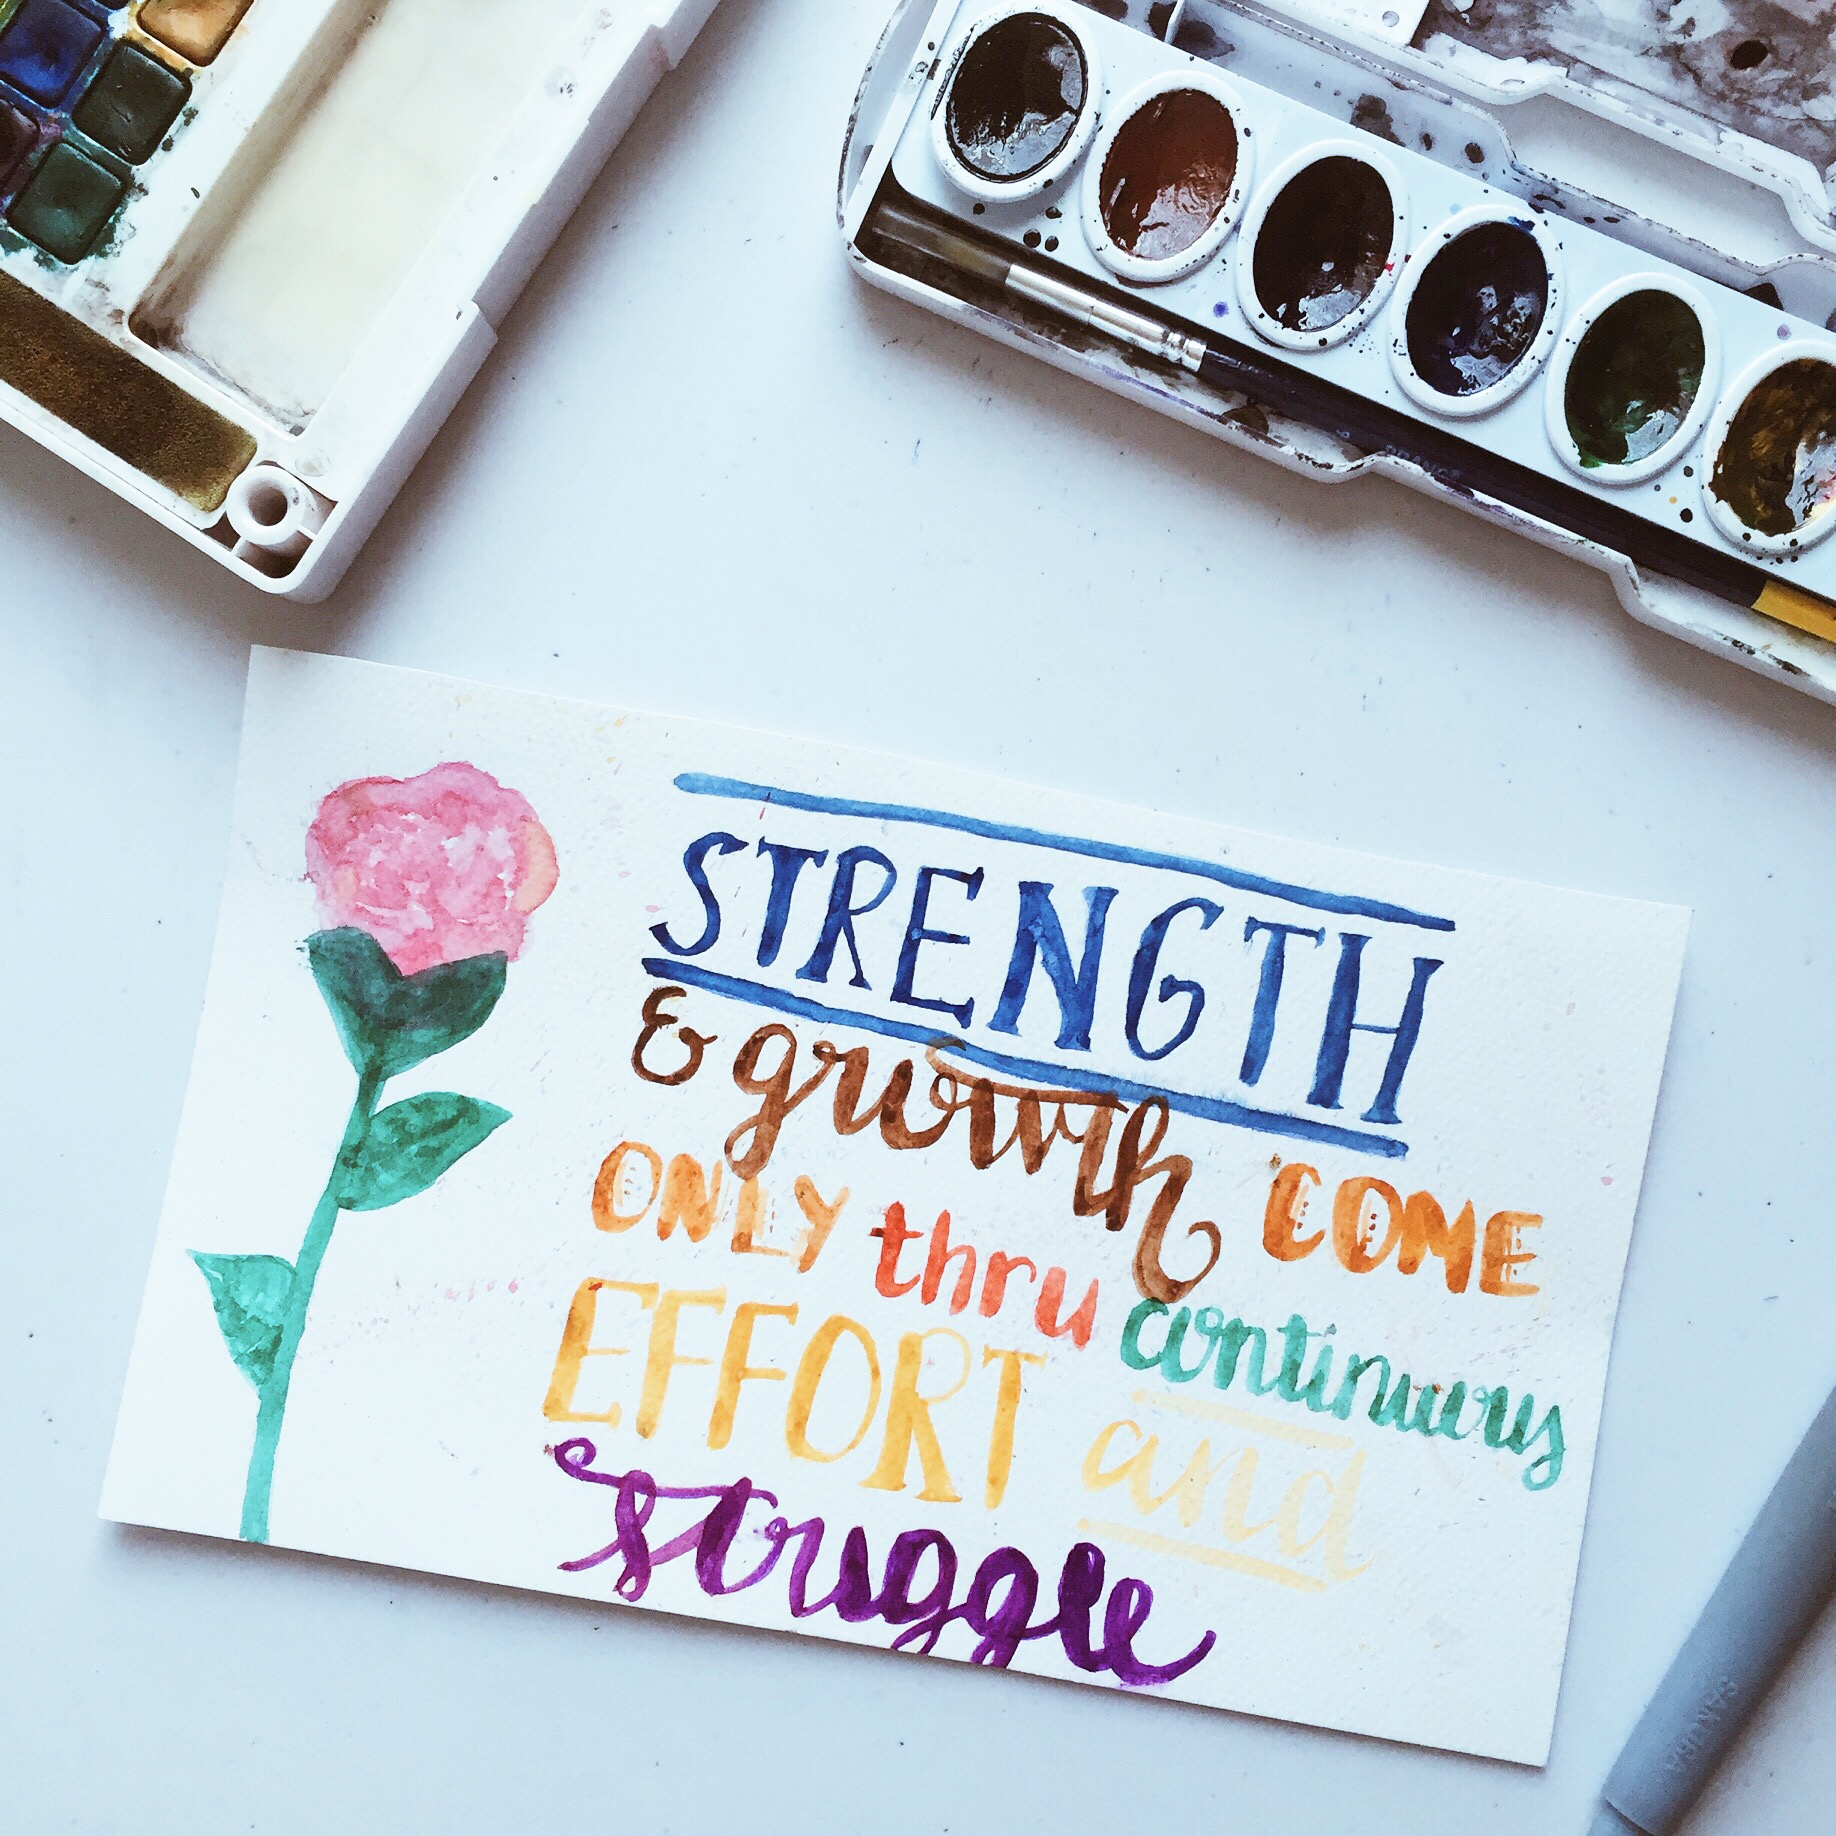 STRENGTH
& growth COME
ONLY thru continuous
EFFORT and
struggle
SAKURA